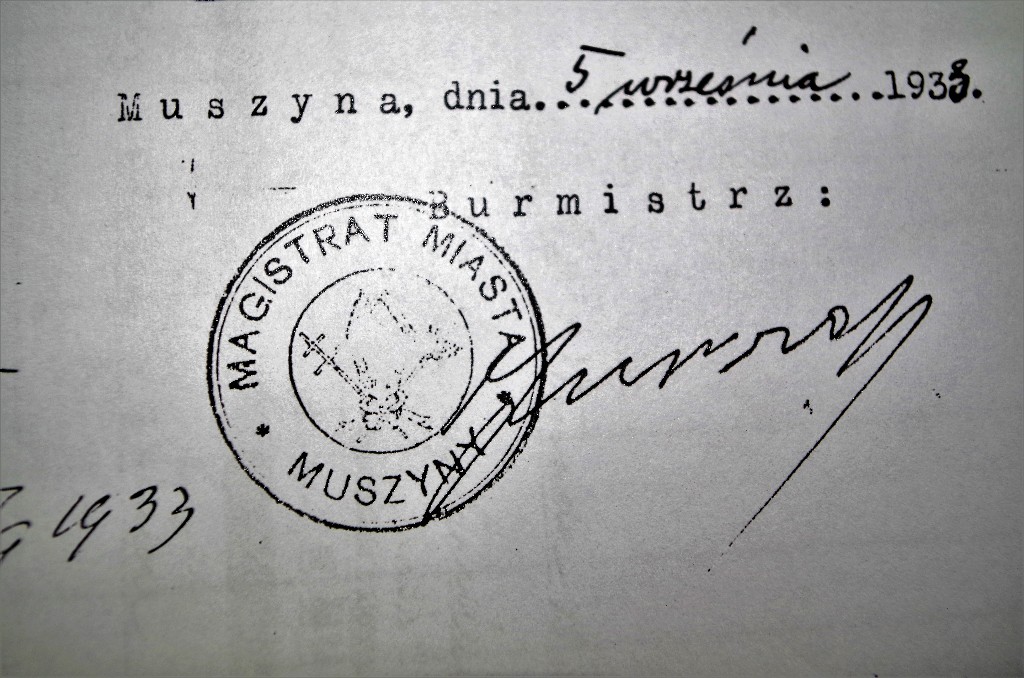 Muszyna, dnia.....5 września.....1933.
Burmistrz:
MAGISTRAT MIASTA
* MUSZYNY *
1933